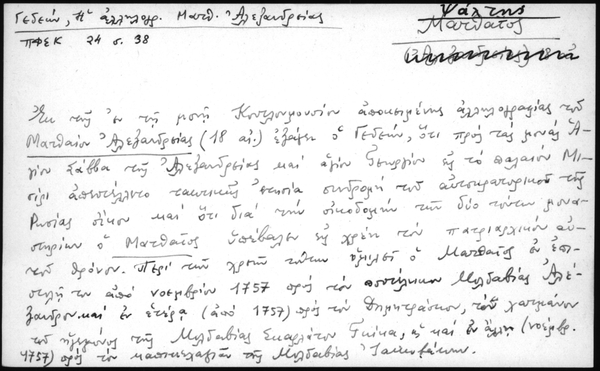 Γεδεών, Ἡ ἀλληλογρ. Ματθ. Ἀλεξανδρείας
ΠΦΕΚ 24 σ. 38
Ψάλτης
Ματθαῖος
Ἐκ τῆς ἐν τῇ μονῇ Κουτλουμουσίου ἀποκειμένης ἀλληλογραφίας τοῦ
Ματθαίου Ἀλεξανδρείας (18 αἰ.) ἐξάγει ὁ Γεδεών, ὅτι πρὸς τὰς μονὰς Ἁ-
γίου Σάββα τῆς Ἀλεξανδρείας καὶ ἁγίου Γεωργίου εἰς τὸ παλαιὸν Μι-
σίρι ἀπεστέλλετο τακτικῶς ἐτησία συνδρομὴ τοῦ αὐτοκρατορικοῦ τῆς
Ρωσίας οἴκου καὶ ὅτι διὰ τὴν οἰκοδομὴν τῶν δύο τούτων μονα-
στηρίων ὁ Ματθαῖος ὑπέβαλεν εἰς χρέη τὸν πατριαρχικὸν αὐ-
τοῦ θρόνον. Περὶ τῶν χρεῶν τούτων ὁμιλεῖ ὁ Ματθαῖος ἐν ἐπι-
στολῇ του ἀπὸ νοεμβρίου 1757 πρὸς τὸν Μολδαβίας Ἀλέ-
ξανδρον καὶ ἐν ἑτέρᾳ (ἀπὸ 1757) πρὸς τὸν Δημητράσκον, τὸν χατμάνον
τοῦ ἡγεμόνος τῆς Μολδαβίας Σκαρλάτου Γκίκα, καὶ ἐν ἄλλῃ (νοέμβρ.
1757) πρὸς τὸν τῆς Μολδαβίας Ἰακωβάκην.